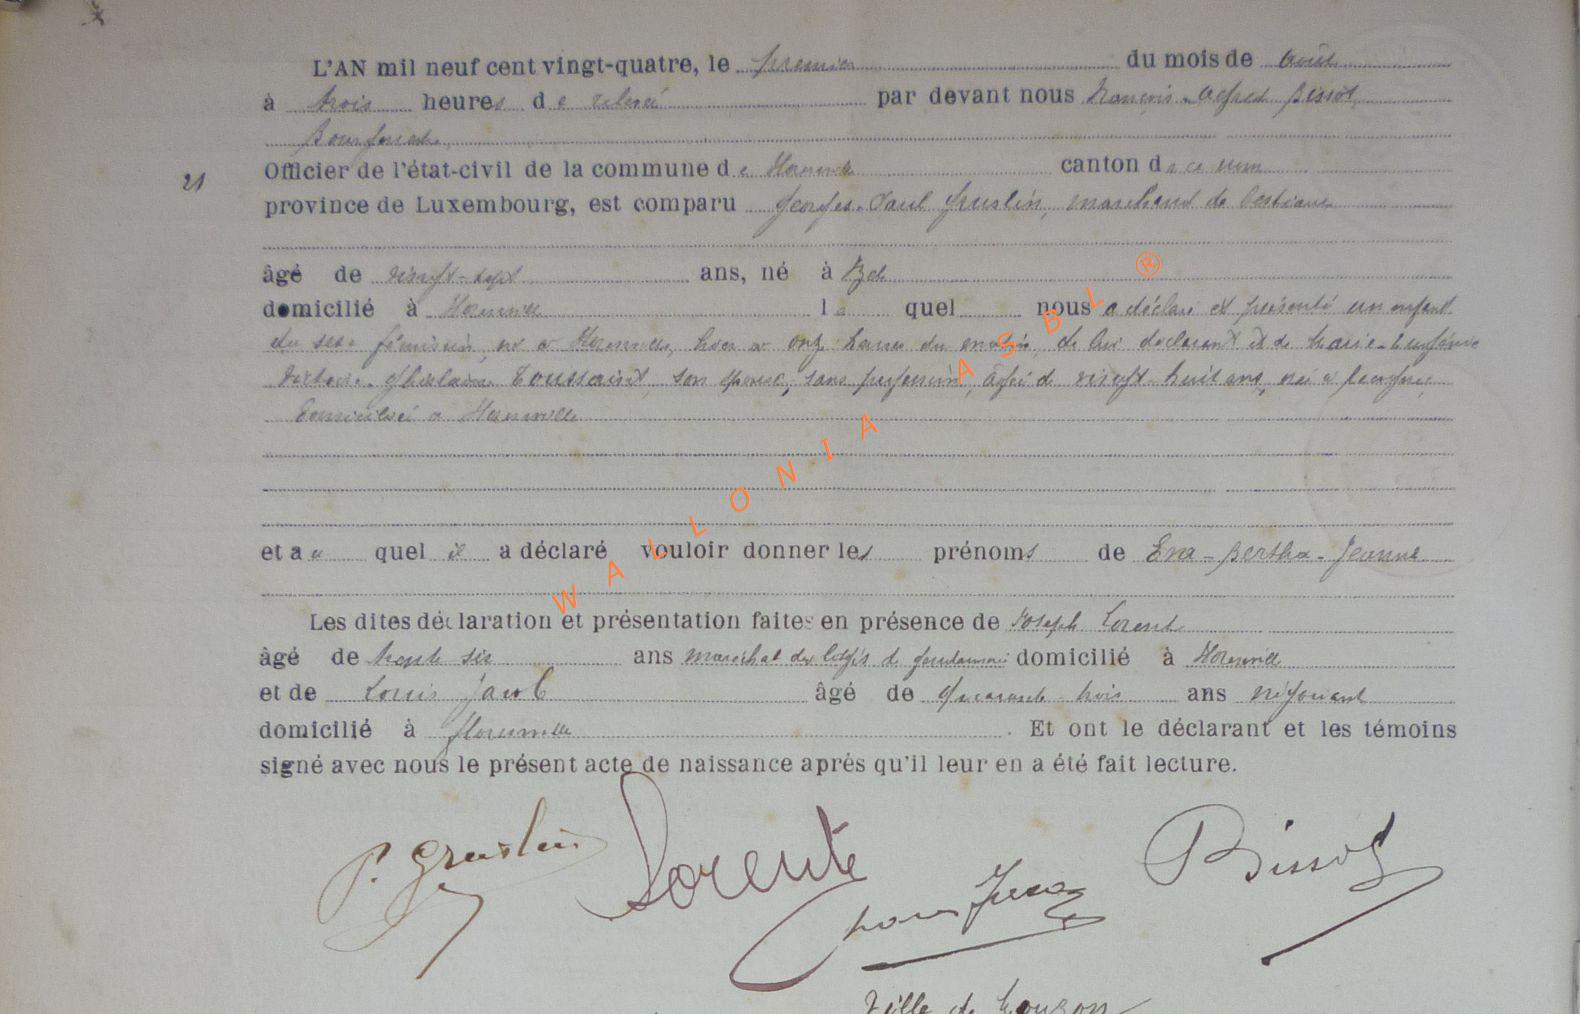 L'AN mil neuf cent vingt-quatre, le premier du mois de Août
à trois heures de relevé par devant nous François-Alfred Bissot,
Bourgmestre
Officier de l'état-civil de la commune de Florenville canton de ce nom
21
province de Luxembourg, est comparu Georges-Paul Gruslin, marchand de bestiaux
âgé de vingt-sept ans, né à
domicilié à Florenville lequel nous a déclaré et présenté un enfant
du sexe féminin, né à Florenville, hier à onze heures du matin, de lui déclarant et de Marie
Victoire-Ghislaine Toussaint, son épouse, sans profession, âgée de vingt-huit ans, née à
domiciliée à Florenville
et a u quel il a déclaré vouloir donner les prénoms de Eva-Bertha-Jeanne
Les dites déclaration et présentation faites en présence de Joseph Lorent
âgé de trente six ans maréchal des logis de gendarmerie domicilié à Florenville
et de Louis Jacob âgé de quarante-trois ans négociant
domicilié à Florenville. Et ont le déclarant et les témoins
signé avec nous le présent acte de naissance après qu'il leur en a été fait lecture.
P. Gruslin Lorent Bissot
Ville de Mouzon
WALLONIA ASBL ®